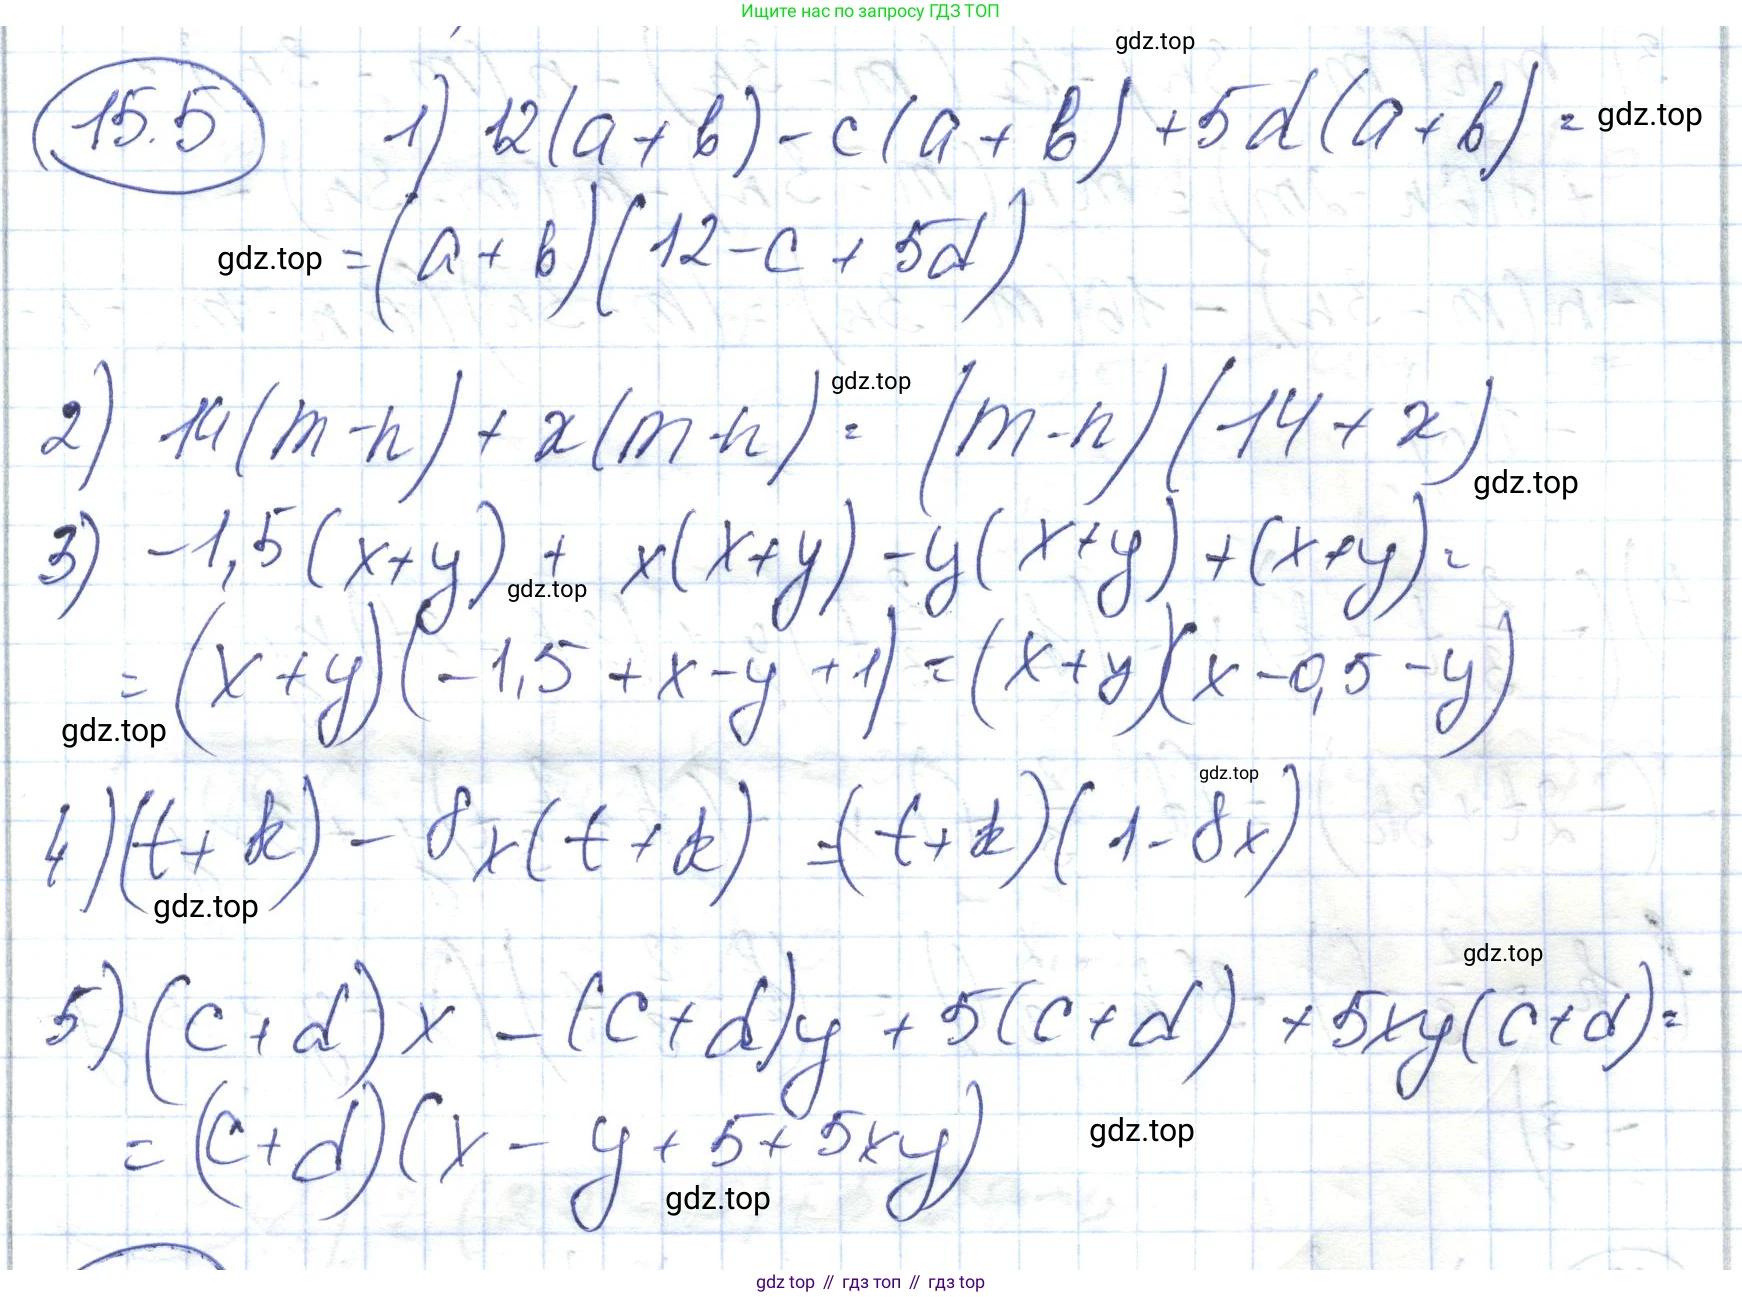 Ищите нас по запросу ГДЗ ТОП
gdz.top
15.5 1) 12(a+b)-c(a+b)+5d(a+b)= gdz.top
gdz.top =(a+b)(12-c+5d)
gdz.top
2) 14(m-n)+x(m-n)=(m-n)(14+x)
gdz.top
3) -1,5(x+y)+x(x+y)-y(x+y)+(x+y)=
gdz.top
=(x+y)(-1,5+x-y+1)=(x+y)(x-0,5-y)
gdz.top
gdz.top
4) (t+k)-8x(t+k)=(t+k)(1-8x)
gdz.top
gdz.top
5) (c+d)x-(c+d)y+5(c+d)+5xy(c+d)=
=(c+d)(x-y+5+5xy) gdz.top
gdz.top
gdz top // гдз топ // gdz top